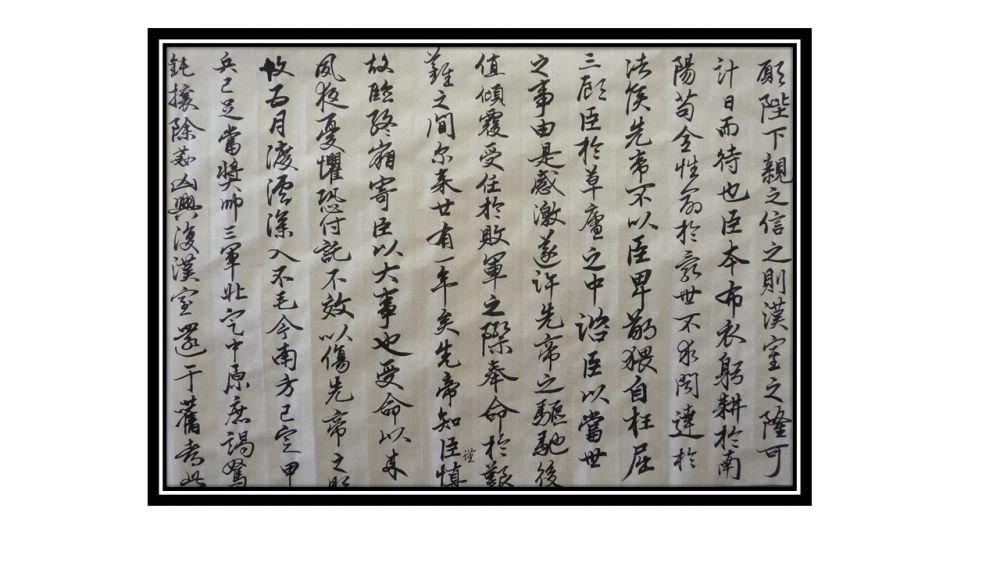 願陛下親之信之則漢室之隆可
計日而待也臣本布衣躬耕於南
陽苟全性命於亂世不求聞達於
諸侯先帝不以臣卑鄙猥自枉屈
三顧臣於草廬之中諮臣以當世
之事由是感激遂許先帝之驅馳後
值傾覆受任於敗軍之際奉命於艱
難之間尔来廿有一年矣先帝知臣謹慎
故臨終崩寄臣以大事也受命以来
夙夜憂懼恐付託不效以傷先帝之明
故五月渡瀘深入不毛今南方已定甲
兵已足當獎帥三軍北定中原庶竭駑
鈍攘除姦凶興復漢室還于舊都此